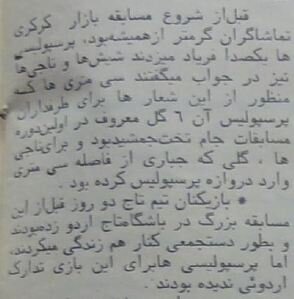 قبل‌از شروع مسابقه بازار کرکری
تماشاگران گرمتر ازهمیشه‌بود، پرسپولیسی
ها یکصدا فریاد میزدند شیش‌ها و تاجی‌ها
نیز در جواب میگفتند سی متری ها که
منظور از این شعار ها برای طرفداران
پرسپولیس آن ۶ گل معروف در اولین‌دوره
مسابقات جام تخت‌جمشیدبود و برای‌تاجی
ها ، گلی که جباری از فاصله سی متری
وارد دروازه پرسپولیس کرده بود .
● بازیکنان تیم تاج دو روز قبل‌از این
مسابقه بزرگ در باشگاه‌تاج اردو زده‌بودند
و بطور دستجمعی کنار هم زندگی میکردند،
اما پرسپولیسی هابرای این بازی تدارک
اردوئی ندیده بودند .